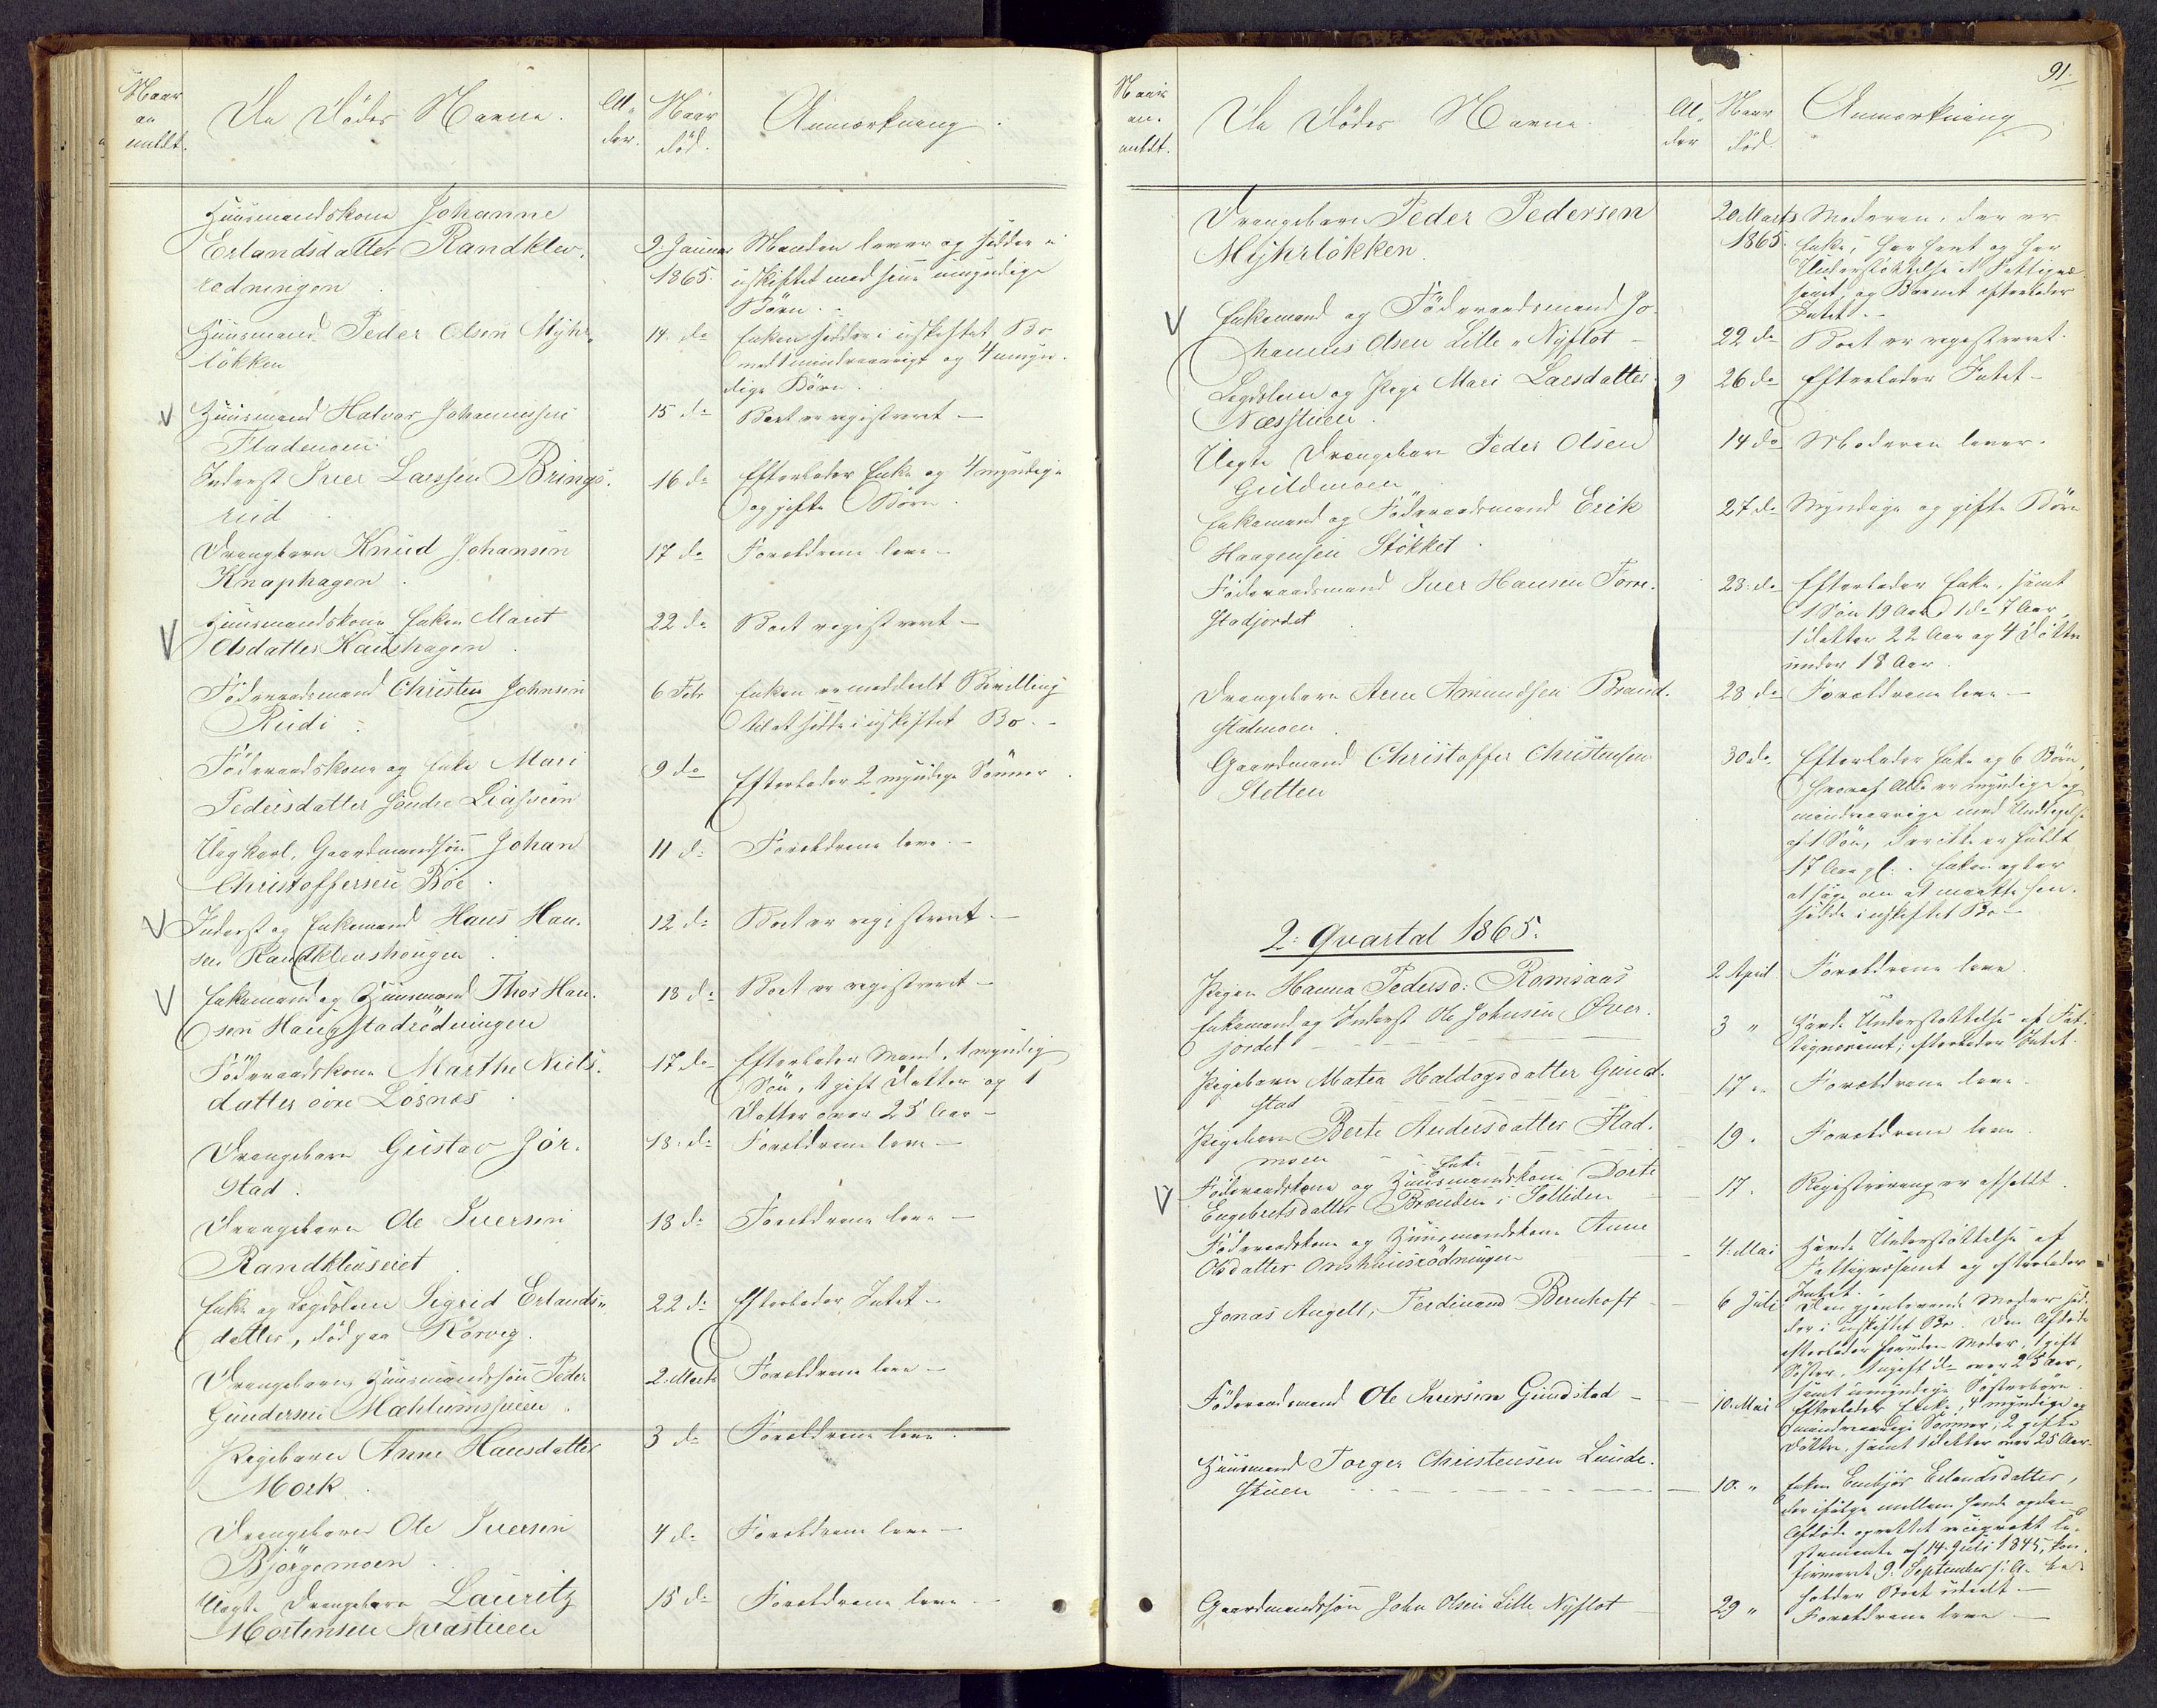 Naar
an
meldt.
De Dødes Navne.
Al-
der.
Naar
død.
Anmærkning.
Huusmandskone Johanne
Erlandsdatter Randklev-
rødningen
9. Januar
1865.
Manden lever og sidder i
uskiftet med sine umyndige
Børn.
Huusmand Peder Olsen Myhr-
løkken
14 do
Enken sidder i uskiftet Bo
med 1 mindreaarigt og 4 umyn-
dige Børn.
V Huusmand Halvor Johannessen
Flademoen
15 do
Boet er registreret —
Inderst Iver Larssen Brings-
rud
16 do
Efterlader Enke og 4 myndige
og gifte Børn.
Drengebarn Knud Johansen
Knaphagen
17 do
Forældrene leve —
V Huusmandskone Enken Marit
Olsdatter Kaushagen
22 do
Boet registreret —
Føderaadsmand Christen Johnsen
Rudi
6 Febr
Enken er meddeelt Bevilling
til at sidde i uskiftet Bo. —
Føderaadskone og Enke Mari
Pedersdatter søndre Liaseien
9 do
Efterlader 2 myndige Sønner.
Ungkarl, Gaardmandssøn Johan
Christoffersen Bøe
11 do
Forældrene leve. —
V Inderst og Enkemand Hans Han-
sen Randklevshougen
12 do
Boet er registreret —
V Enkemand og Huusmand Thor Han-
sen Haugstadrødningen
18 do
Boet er registreret —
Føderaadskone Marthe Niels-
datter øvre Løsnæs
17 do
Efterlader Mand, 1 myndig
Søn, 1 gift Datter og 1
Datter over 25 Aar —
Drengebarn Gustav Jør-
stad.
18. do
Forældrene leve —
Drengebarn Ole Iversen
Randklevseiet
18 do
Forældrene leve —
Enke og Lægdslem Sigrid Erlands-
datter, død paa Kørveg.
22 do
Efterlader Intet —
Drengebarn, Huusmandssøn Peder
Gundersen Mæhlumsstuen
2. Marts
Forældrene leve —
Pigebarn Anne Hansdatter
Mork
3 do
Forældrene leve.
Drengebarn Ole Iversen
Bjørgemoen
4 do
Forældrene leve —
Uægte Drengebarn Lauritz
Mortensen Kvastuen
15 do
Forældrene leve —
91.
Naar
an-
meldt.
De Dødes Navne
Al-
der
Naar
død.
Anmærkning
Drengebarn Peder Pedersen
Myhrløkken.
20 Marts
1865.
Moderen, der er
Enke, har havt og har
Understøttelse af Fattigvæ-
senet, og Barnet efterlader
Intet. —
V Enkemand og Føderaadsmand Jo-
hannes Olsen Lille-Nyflot —
22 do
Boet er registreret.
Lægdslem og Pige Mari Larsdatter
Næsstuen.
9
26 do
Efterlader Intet —
Uægte Drengebarn Peder Olsen
Guldmoen
14 do
Moderen lever.
Enkemand og Føderaadsmand Erik
Haagensen Støkket
27 do
Myndige og gifte Børn
Føderaadsmand Iver Hansen Torre-
stadjordet
23. do
Efterlader Enke, samt
1 Søn 19 Aar, 1 do 7 Aar,
1 Datter 22 Aar og 4 Døttre
under 18 Aar.
Drengebarn Arne Amundsen Brand-
stadmoen
28 do
Forældrene leve —
Gaardmand Christoffer Christensen
Sletten
30 do
Efterlader Enke og 6 Børn,
hvoraf Alle er myndige og
mindreaarige med Undtagelse
af 1 Søn, der ikke er fuldt
17 Aar gl. Enken agter
at søge om at maatte hen-
sidde i uskiftet Bo —
2. Qvartal 1865.
Pigen Hanna Pedersd: Romsaas
2 April
Forældrene leve
Enkemand og Inderst Ole Johnsen Øver-
jordet
3 "
Havde Understøttelse af Fat-
tigvæsenet; efterlader Intet.
Pigebarn Matea Haldogsdatter Gund-
stad
17 "
Forældrene leve.
Pigebarn Berte Andersdatter Flad-
moen
19.
Forældrene leve.
V Føderaadskone og Enke Huusmandskone Dorte
Engebretsdatter Brænden i Solliden
17.
Registrering er afholdt.
Føderaadskone og Huusmandskone Anne
Olsdatter Onshuusrødningen
4. Mai
Havde Understøttelse af
Fattigvæsenet og efterlader
Intet.
Jonas Angell, Ferdinand Bernhoft
6 Juli
Den gjenlevende Moder sid-
der i uskiftet Bo. Den Afdøde
efterlader foruden Moder, 1 gift
Søster, 1 ugift do over 25 Aar,
samt umyndige Søsterbørn.
Føderaadsmand Ole Iversen Gundstad —
10. Mai
Efterlader Enke, 4 myndige og
mindreaarige Sønner, 2 gifte
Døttre, samt 1 Datter over 25 Aar.
Huusmand Torger Christensen Lunde-
stuen
10. "
Enken Embjør Erlandsdatter,
der ifølge mellem hende og den
Afdøde oprettet reciprokt Te-
stamente af 14 Juli 1845, kon-
firmeret 9. September s: A. be-
holder Boet udeelt. —
Gaardmandssøn John Olsen Lille Nyflot
29 "
Forældrene leve —